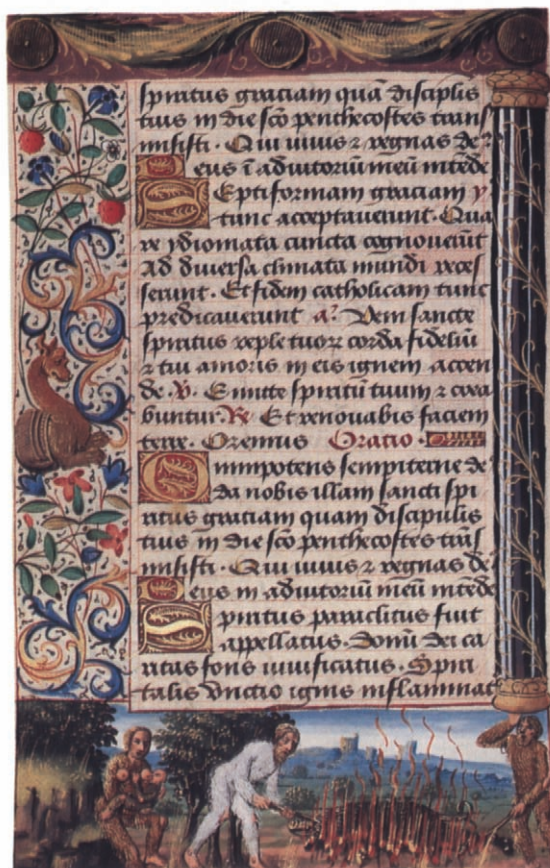 spiritus graciam quā discipl̄is
tuis in die sc̄o penthecostes trans
misisti · Qui uiuis ⁊ regnas de ?
Deus ī adiutoriū meū intēde
Septiformam graciam y
tunc acceptauerunt · Qua
re ydiomata cuncta cognouerūt
Ad diuersa climata mundi reces
serunt · Et fidem catholicam tunc
predicauerunt a? Veni sancte
spiritus reple tuorꝫ corda fideliū
⁊ tui amoris in eis ignem accen
de · ℣. Emitte spiritū tuum ⁊ crea
buntur ℟. Et renouabis faciem
terre · Oremus Oratio ·
Omnipotens sempiterne dē
da nobis illam sancti spi
ritus graciam quam discipulis
tuis in die sc̄o penthecostes trās
misisti · Qui uiuis ⁊ regnas dē
Deus in adiutoriū meū intēde
Spiritus paraclitus fuit
appellatus · Donū dei ca
ritas fons uiuificatus · Spiri
talis vnctio ignis inflammat